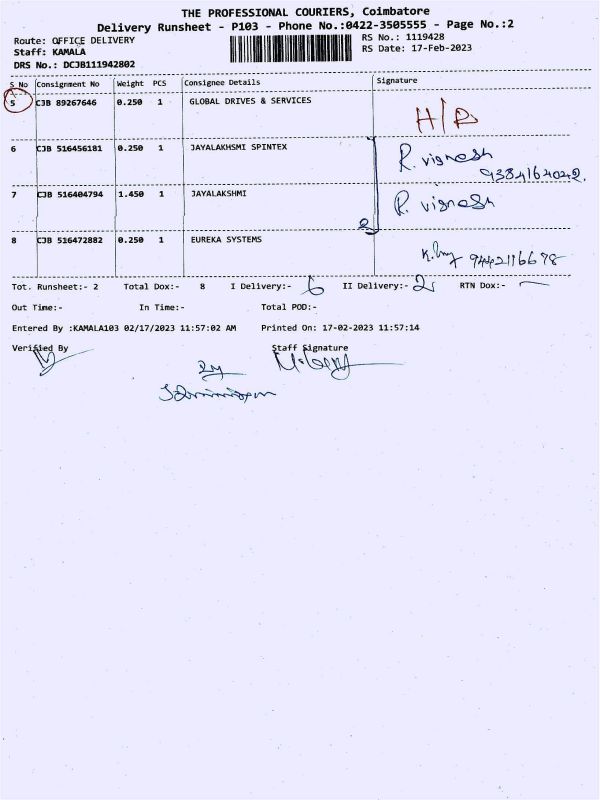 THE PROFESSIONAL COURIERS, Coimbatore
Delivery Runsheet - P103 - Phone No.:0422-3505555 - Page No.:2
Route: OFFICE DELIVERY
RS No.: 1119428
Staff: KAMALA
RS Date: 17-Feb-2023
DRS No.: DCJB111942802
S No Consignment No Weight PCS Consignee Details Signature
5 CJB 89267646 0.250 1 GLOBAL DRIVES & SERVICES
6 CJB 516456181 0.250 1 JAYALAKHSMI SPINTEX R. vignesh
9384164042.
7 CJB 516404794 1.450 1 JAYALAKSHMI R. vignesh
2
8 CJB 516472882 0.250 1 EUREKA SYSTEMS 9442116678
Tot. Runsheet:- 2 Total Dox:- 8 I Delivery:- 6 II Delivery:- 2 RTN Dox:- —
Out Time:- In Time:- Total POD:-
Entered By :KAMALA103 02/17/2023 11:57:02 AM Printed On: 17-02-2023 11:57:14
Verified By Staff Signature